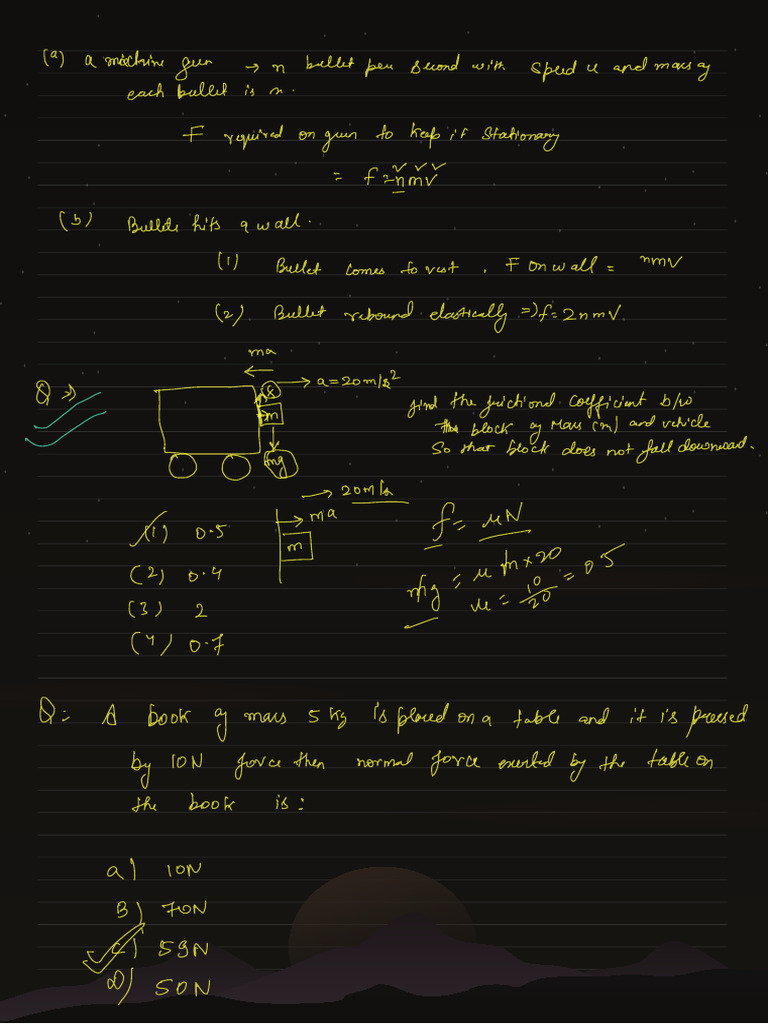 (a) a machine gun → n bullet per second with speed u and mass of
each bullet is m.
F required on gun to keep it stationary
= f = nmv
(b) Bullets hits a wall.
(1) Bullet comes to rest, F on wall = nmv
(2) Bullet rebound elastically => f = 2nmv.
ma
Q => a = 20m/s²
find the frictional coefficient b/w
m
the block of mass (m) and vehicle
mg
so that block does not fall downward.
→ 20m/s
(1) 0.5
→ ma
m
f = μN
(2) 0.4
mg = μ m × 20
(3) 2
μ = 10/20 = 0.5
(4) 0.7
Q: A book of mass 5 kg is placed on a table and it is pressed
by 10N force then normal force exerted by the table on
the book is:
a) 10N
B) 70N
C) 59N
D) 50N